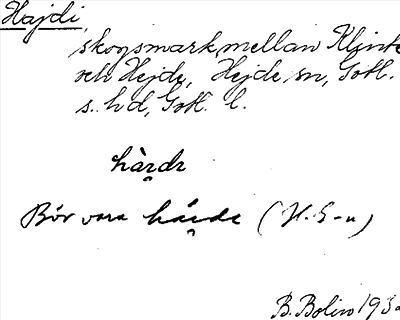 Hajdi,
skogsmark mellan Klinte
och Hejde, Hejde sn, Gotl.
s. hd, Gotl. l.
Bör vara (H. G-n)
B. Bolin 193